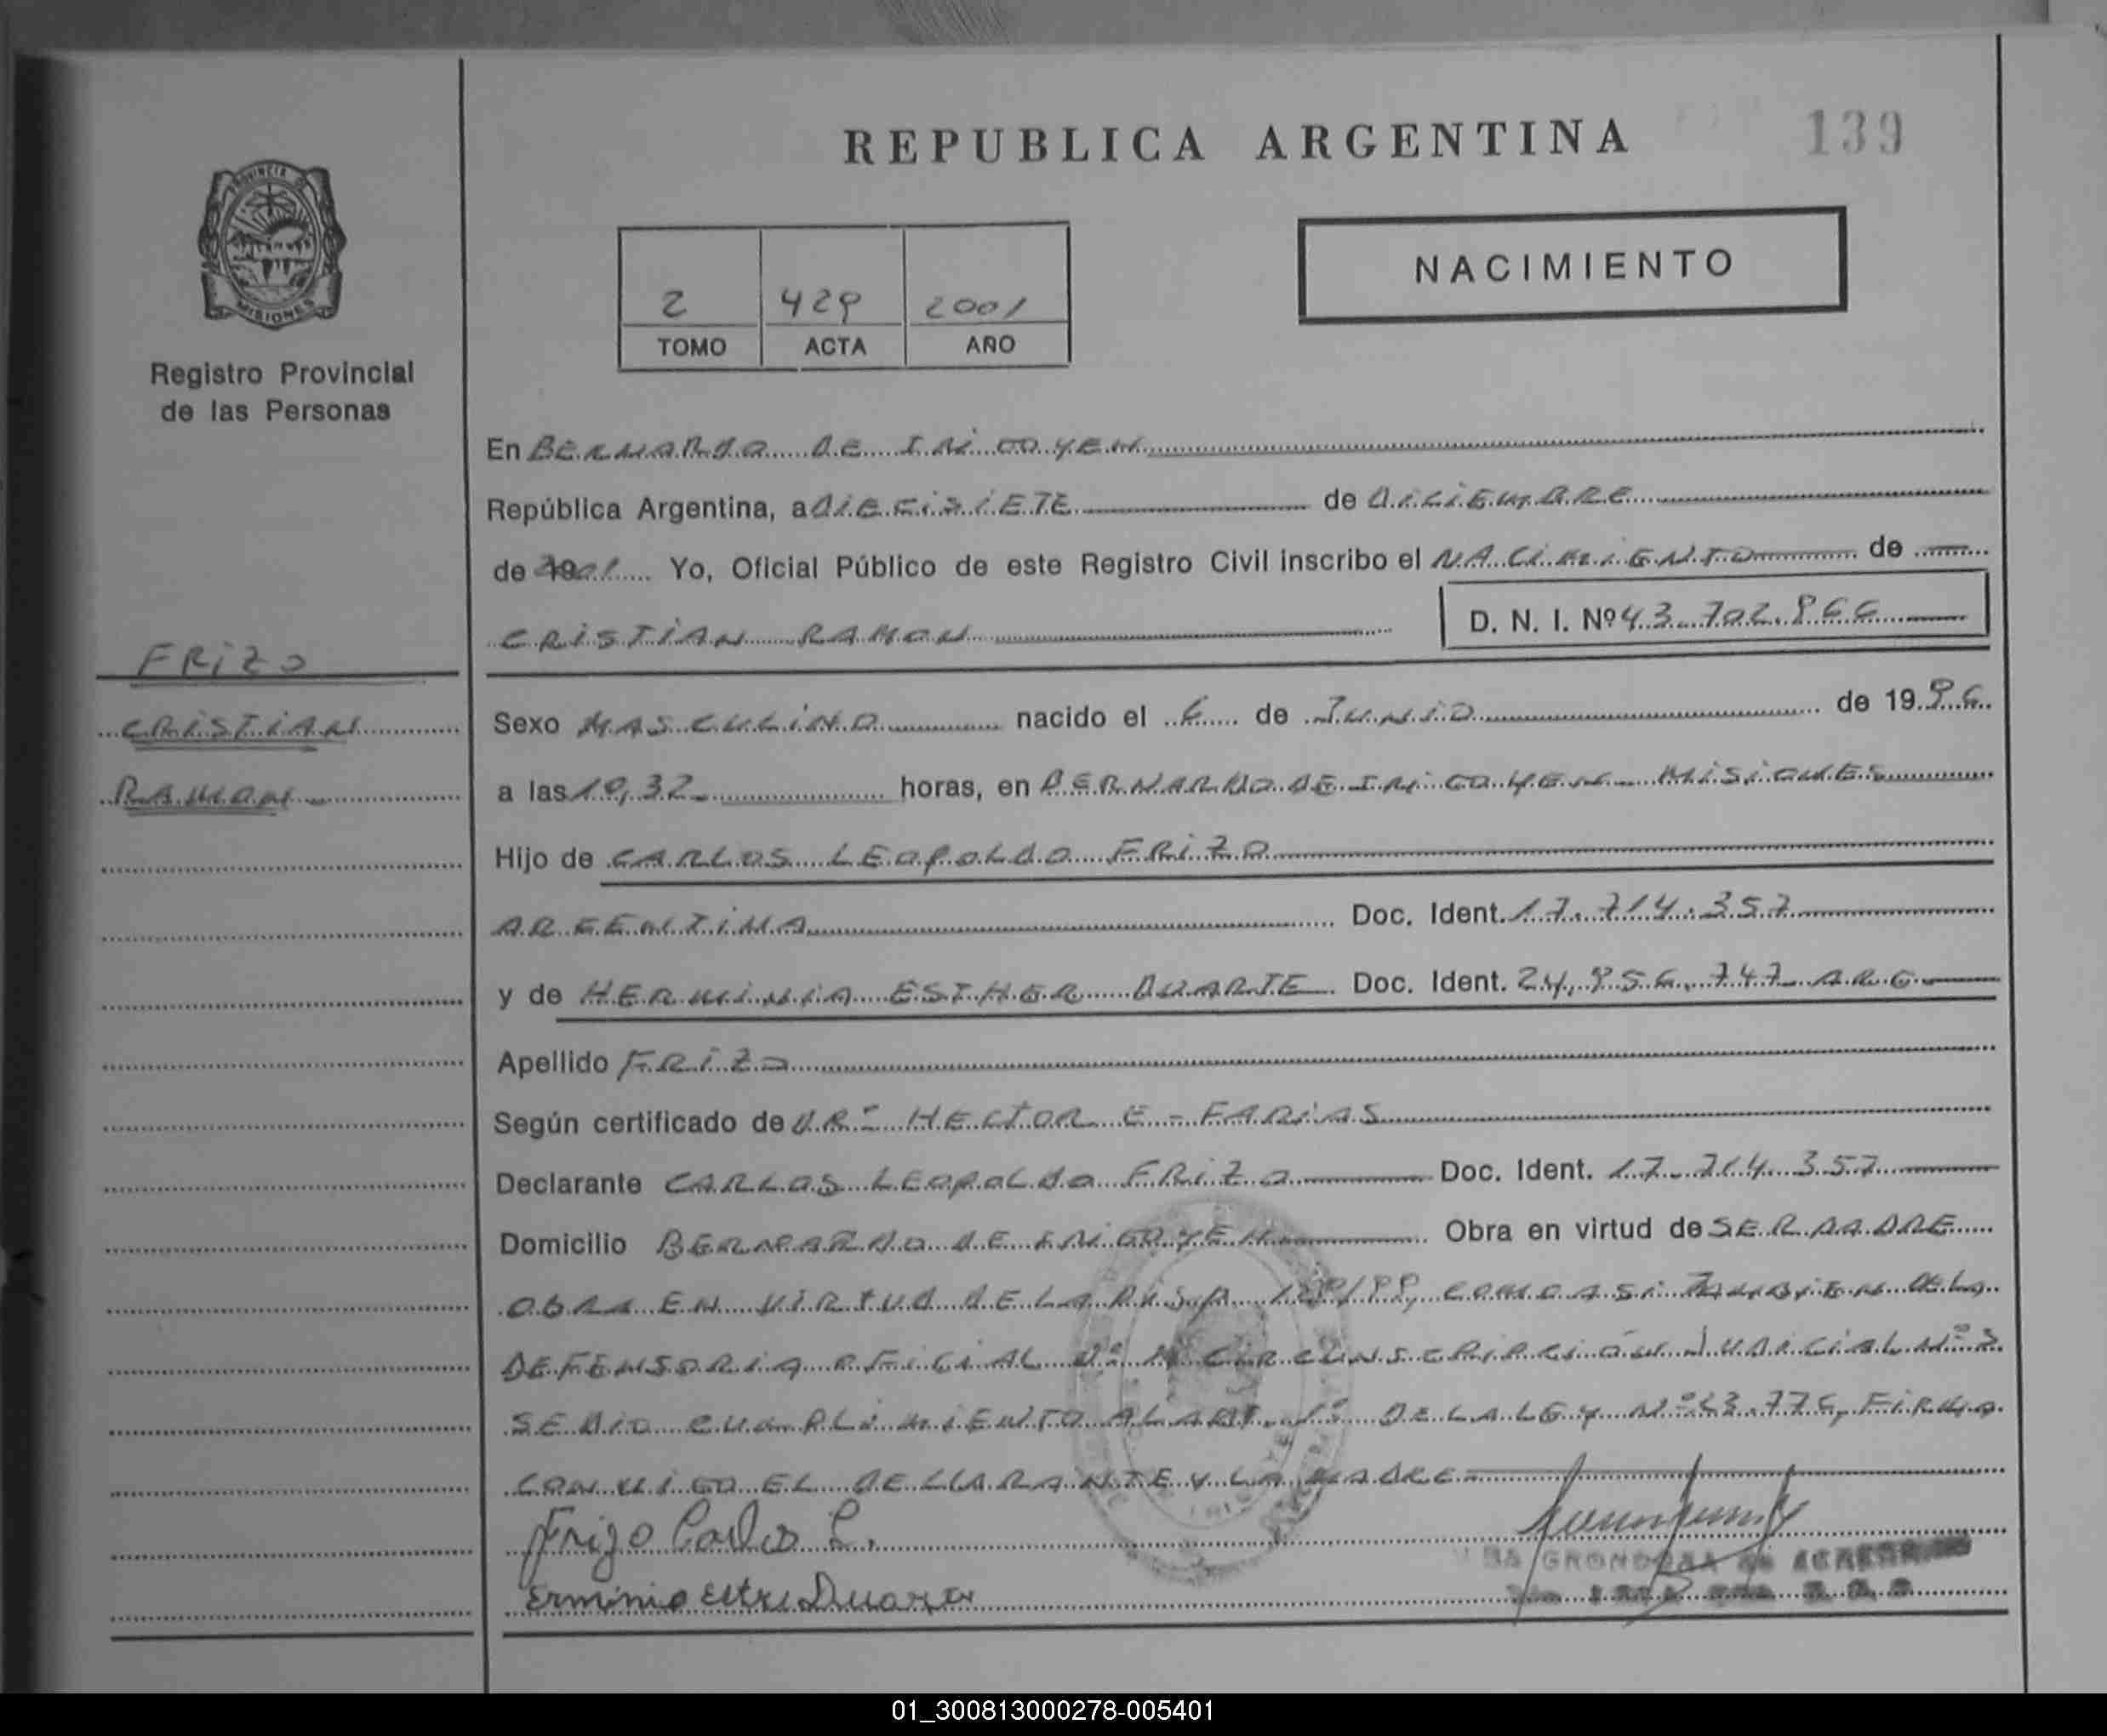 REPUBLICA ARGENTINA
139
PROVINCIA DE
MISIONES
Registro Provincial
de las Personas
2 429 2001
TOMO ACTA AÑO
NACIMIENTO
En BERNARDO DE IRIGOYEN
República Argentina, a DIECISIETE de DICIEMBRE
de 2001 Yo, Oficial Público de este Registro Civil inscribo el NACIMIENTO de
CRISTIAN RAMON
D. N. I. Nº 43.702.966
FRIZO
CRISTIAN
RAMON
Sexo MASCULINO nacido el 6 de JUNIO de 1996
a las 19,32 horas, en BERNARDO DE IRIGOYEN MISIONES
Hijo de CARLOS LEOPOLDO FRIZO
ARGENTINA Doc. Ident. 17.714.357
y de HERMINIA ESTHER DUARTE Doc. Ident. 24,956,747 ARG
Apellido FRIZO
Según certificado de DR- HECTOR E - FARIAS
Declarante CARLOS LEOPOLDO FRIZO Doc. Ident. 17.714.357
Domicilio BERNARDO DE IRIGOYEN Obra en virtud de SER PADRE
OBRA EN VIRTUD DE LA COMO ASI TAMBIEN DE LA
DEFENSORIA OFICIAL CIRCUNSCRIPCIÓN JUDICIAL Nº 3
SE DIO CUMPLIMIENTO AL ART. 1º DE LA LEY Nº 23.776, FIRMA
CONMIGO EL DECLARANTE Y LA MADRE
Frizo Carlos L.
Erminia Ester Duarte
GRONDONA de
01_300813000278-005401